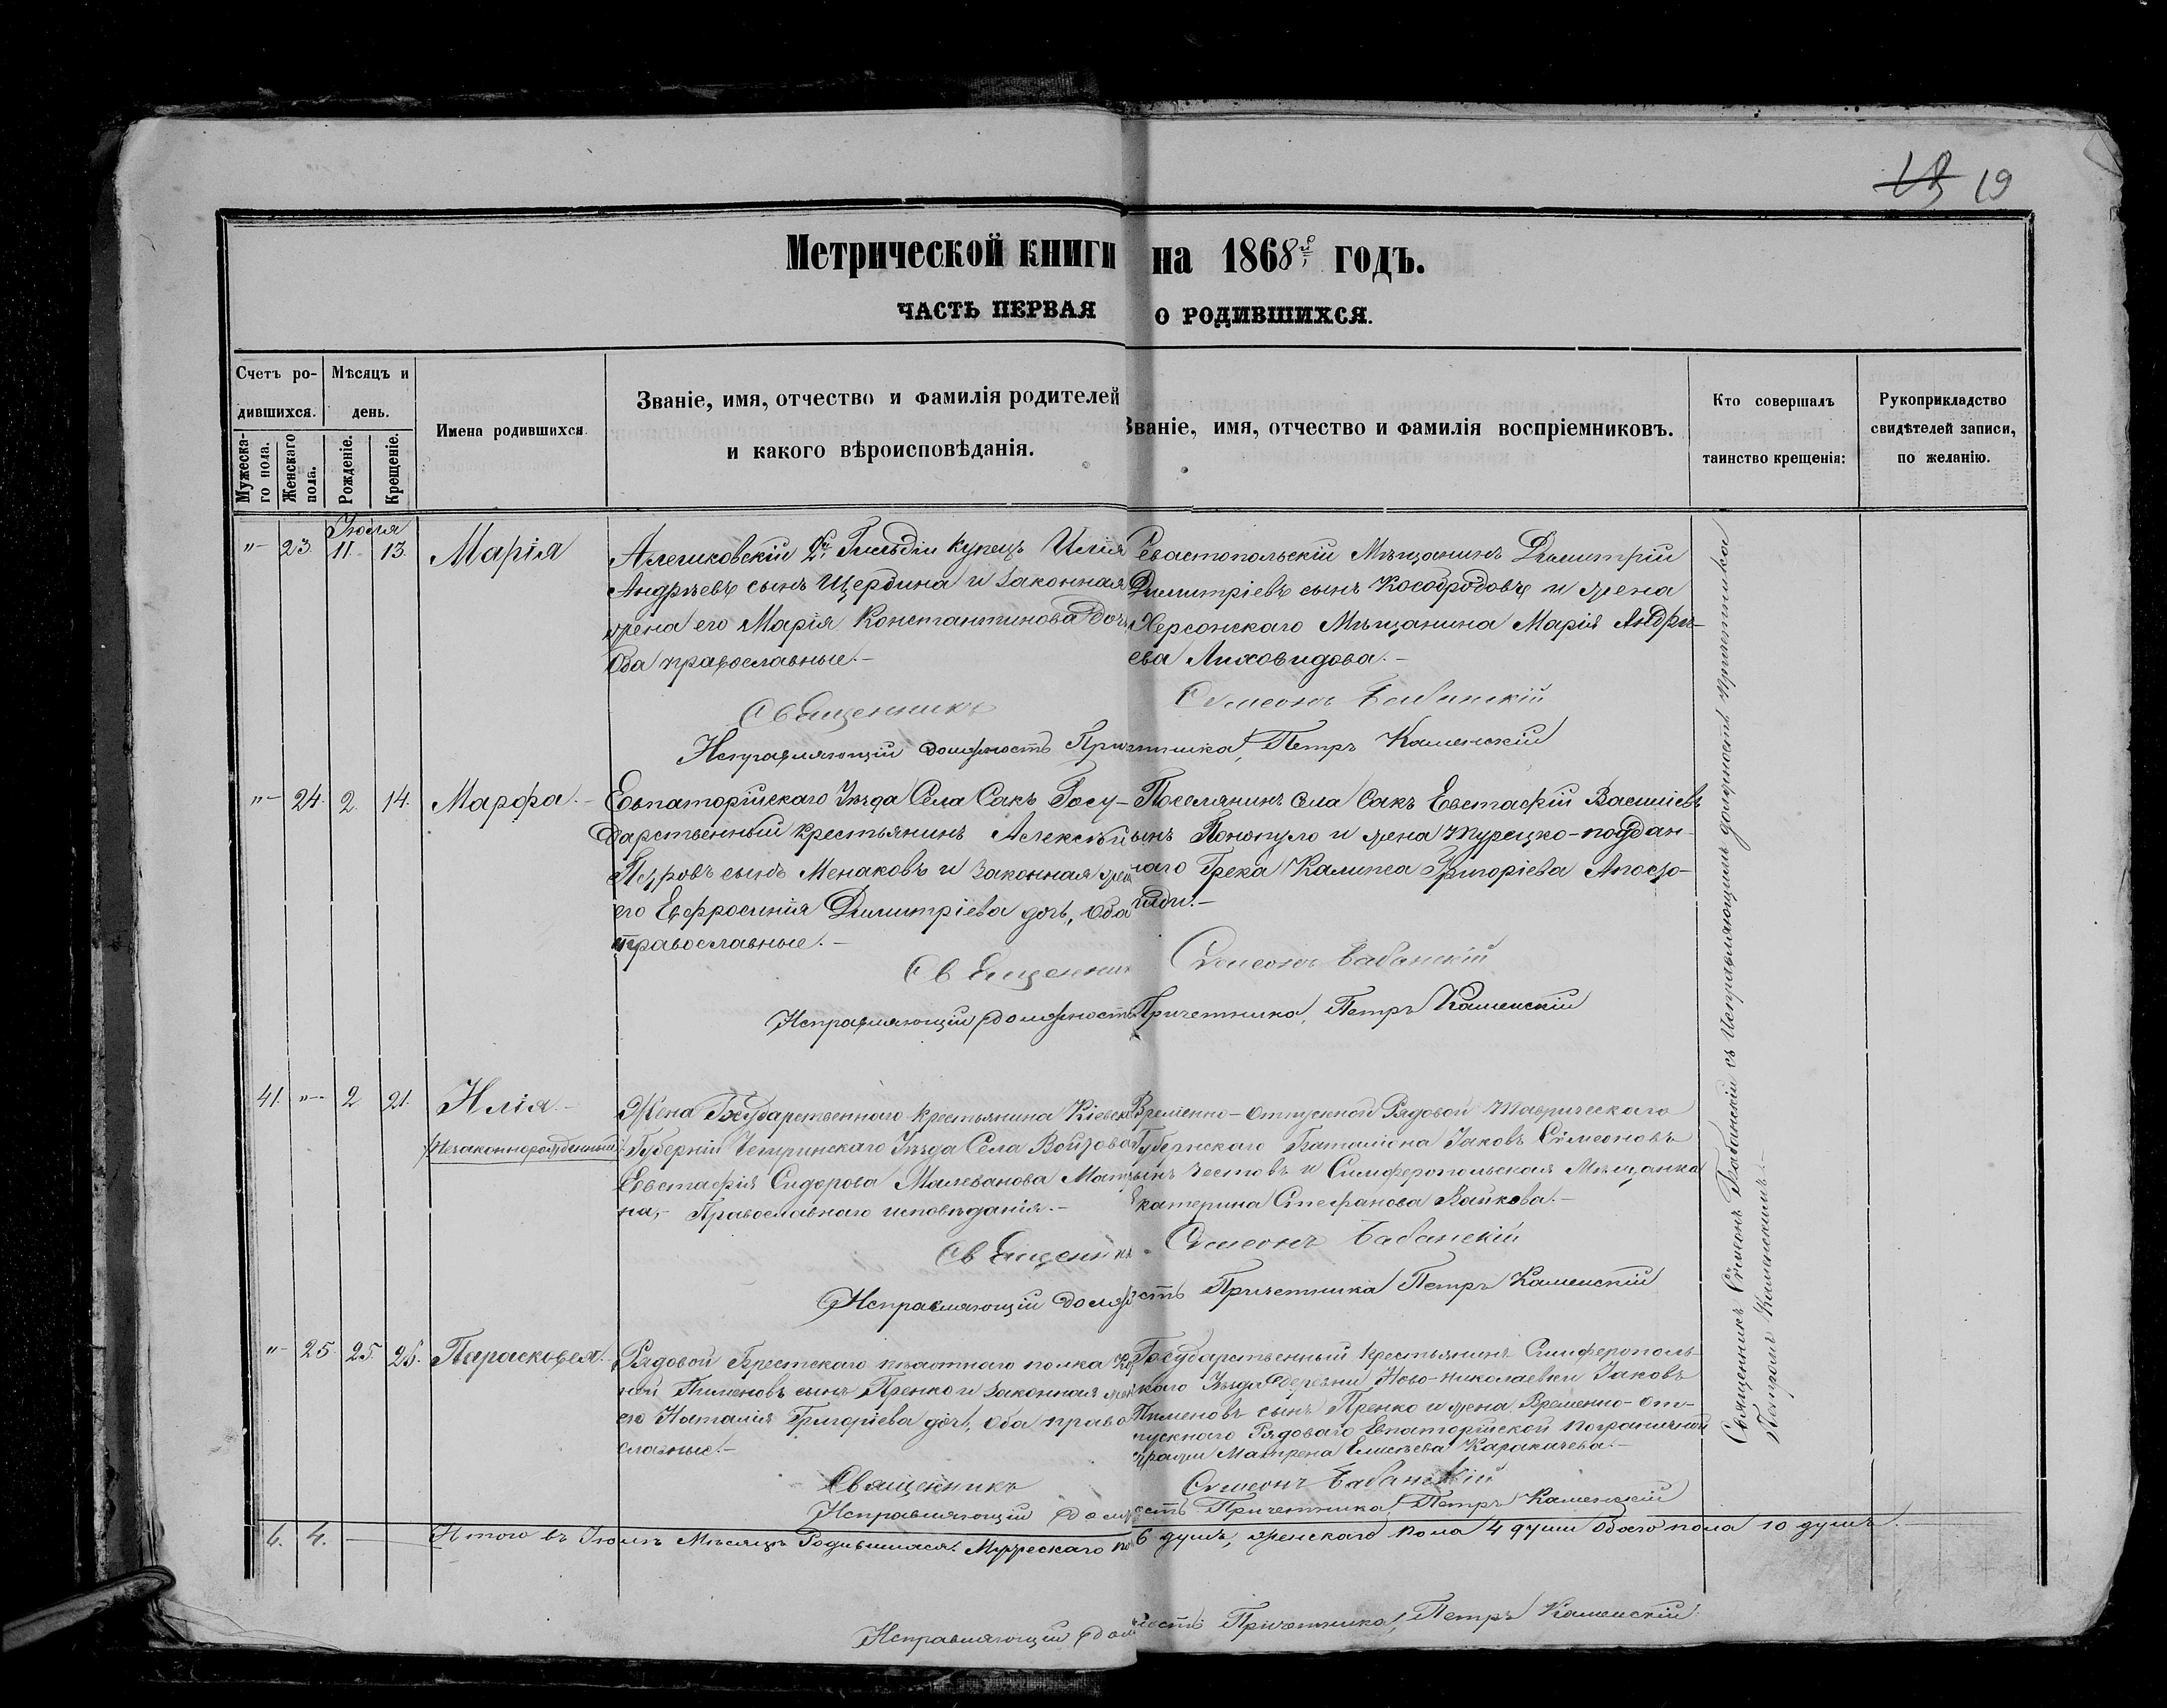 18 19
Метрической книги на 1868й годъ.
ЧАСТЬ ПЕРВАЯ О РОДИВШИХСЯ.
Счетъ родившихся.
Мѣсяцъ и день.
Мужескаго пола.
Женскаго пола.
Рожденіе.
Крещеніе.
Имена родившихся.
Званіе, имя, отчество и фамилія родителей
и какого вѣроисповѣданія.
Званіе, имя, отчество и фамилія воспріемниковъ.
Кто совершалъ
таинство крещенія:
Рукоприкладство
свидѣтелей записи,
по желанію.
Іюля
"- 23. 11. 13. Марія
Алешковскій 2й Гильдіи купецъ Илія
Андрѣевъ сынъ Щербина и законная
жена его Марія Константинова дочь,
Оба православные.-
Севастопольскій Мѣщанинъ Димитрій
Димитріевъ сынъ Кособродовъ и жена
Херсонскаго Мѣщанина Марія Андрѣ-
ева Лиховидова.-
Священникъ Сѵмеонъ Бабанскій
Исправляющій должность Причетника, Петръ Каменскій
"- 24. 2. 14. Марфа.-
Евпаторійскаго Уѣзда Села Сакъ Госу-
дарственный крестьянинъ Алексѣй
Петровъ сынъ Менаковъ и законная жен
его Евфросинія Димитріева дочь, Оба
православные.-
Поселянинъ села Сакъ Евстафій Василіевъ
сынъ и жена турецко-поддан-
наго Грека Григоріева
Священник Сѵмеонъ Бабанскій
Исправляющій должность Причетника, Петръ Каменскій
41. "- 2 21. Илія.-
/Незаконнорожденный/
Жена Государственнаго крестьянина Кіевско
Губерніи Чигринскаго Уѣзда Села
Евстафія Сидорова Малеванова Матр
на,- Православнаго исповѣданія.-
Временно-Отпускной Рядовой Таврическаго
Губернскаго Баталіона Іаковъ Сѵмеоновъ
сынъ Честовъ и Симферопольская Мѣщанка
Екатерина Стефанова Вайкова.-
Священникъ Сѵмеонъ Бабанскій
Исправляющій должность Причетника Петръ Каменскій
"- 25. 25. 28. Парасковея.
Рядовой Брестскаго пѣхотнаго полка
Пименовъ сынъ Пренко и законная жен
его Наталія Григоріева дочь, Оба право
славные.-
Государственный крестьянинъ Симферополь-
скаго Уѣзда деревни Ново-Николаевки Іаковъ
Пименовъ сынъ Пренко и жена Временно-от-
пускнаго Рядоваго Евпаторійской пограничной
стражи Матрена Елисѣева Каракачева.-
Священникъ Сѵмеонъ Бабанскій
Исправляющій должность Причетника, Петръ Каменскій
6. 4. - Итого въ Іюлѣ Мѣсяцѣ Родившихся: Мужескаго по 6 душъ, женскаго пола 4 души Обоего пола 10 душъ.
Исправляющій должность Причетника, Петръ Каменскій
Священникъ Сѵмеонъ Бабанскій съ Исправляющимъ должность Причетника
Петромъ Каменскимъ.-